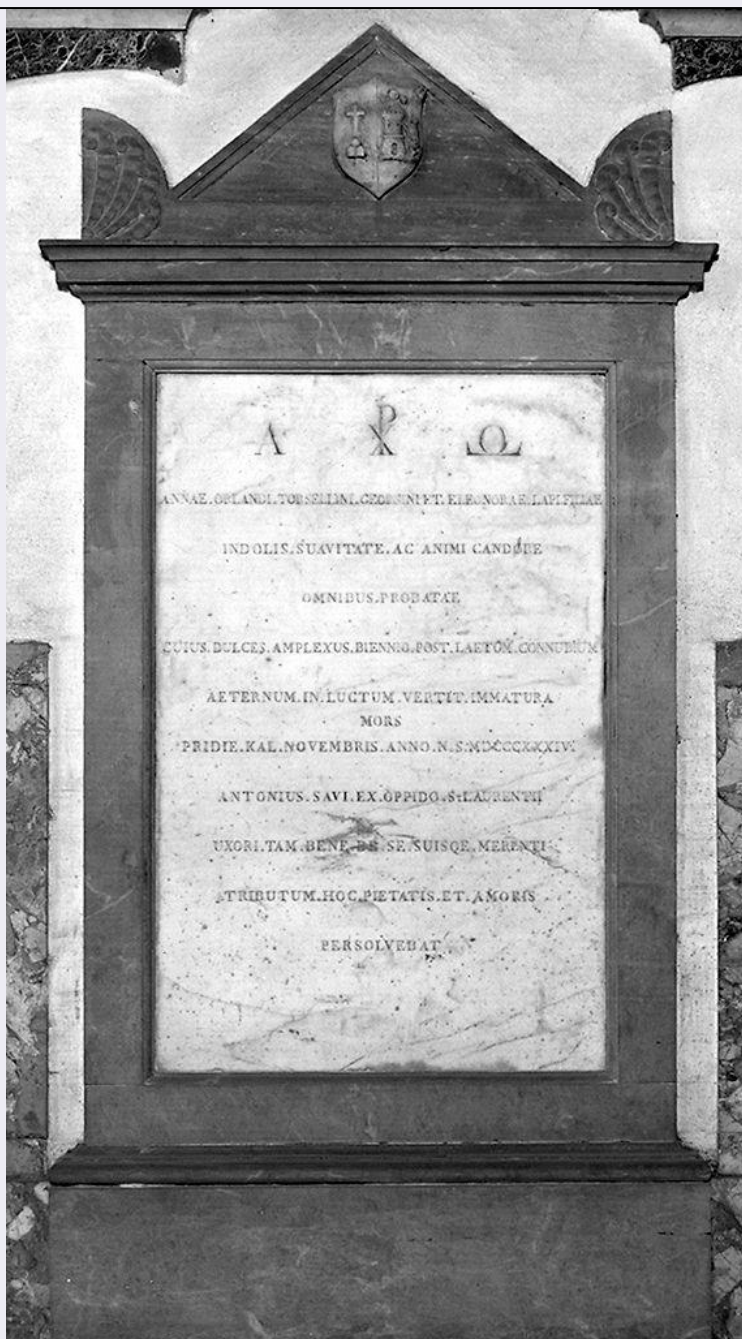 Α ☧ Ω
ANNAE.ORLANDI.TORSELLINI.GEORGINI ET. ELEONORAE.
INDOLIS.SUAVITATE.AC ANIMI CANDORE
OMNIBUS.PROBATAE
CUIUS.DULCES.AMPLEXUS.BIENNIO.POST.LAETUM.CONNUBIUM
AETERNUM.IN.LUCTUM.VERTIT.IMMATURA
MORS
PRIDIE.KAL.NOVEMBRIS.ANNO.N.S.MDCCCXXXIV.
ANTONIUS.SAVI.EX.OPPIDO.S.LAURENTII
UXORI.TAM.BENE.DE.SE.SUISQE.MERENTI
TRIBUTUM.HOC.PIETATIS.ET.AMORIS
PERSOLVEBAT